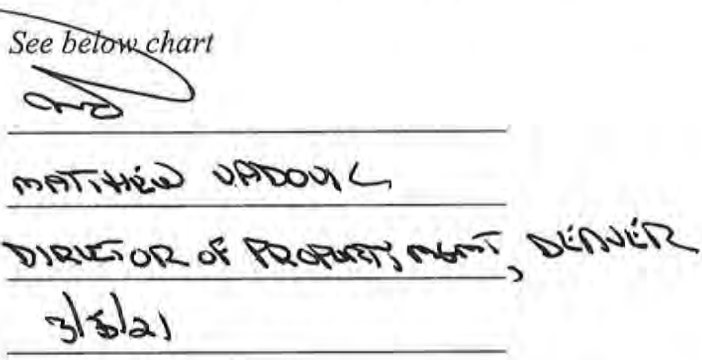 See below chart
MATTHEW VADOVIC
DIRECTOR OF PROPERTY MGMT, DENVER
3/5/21